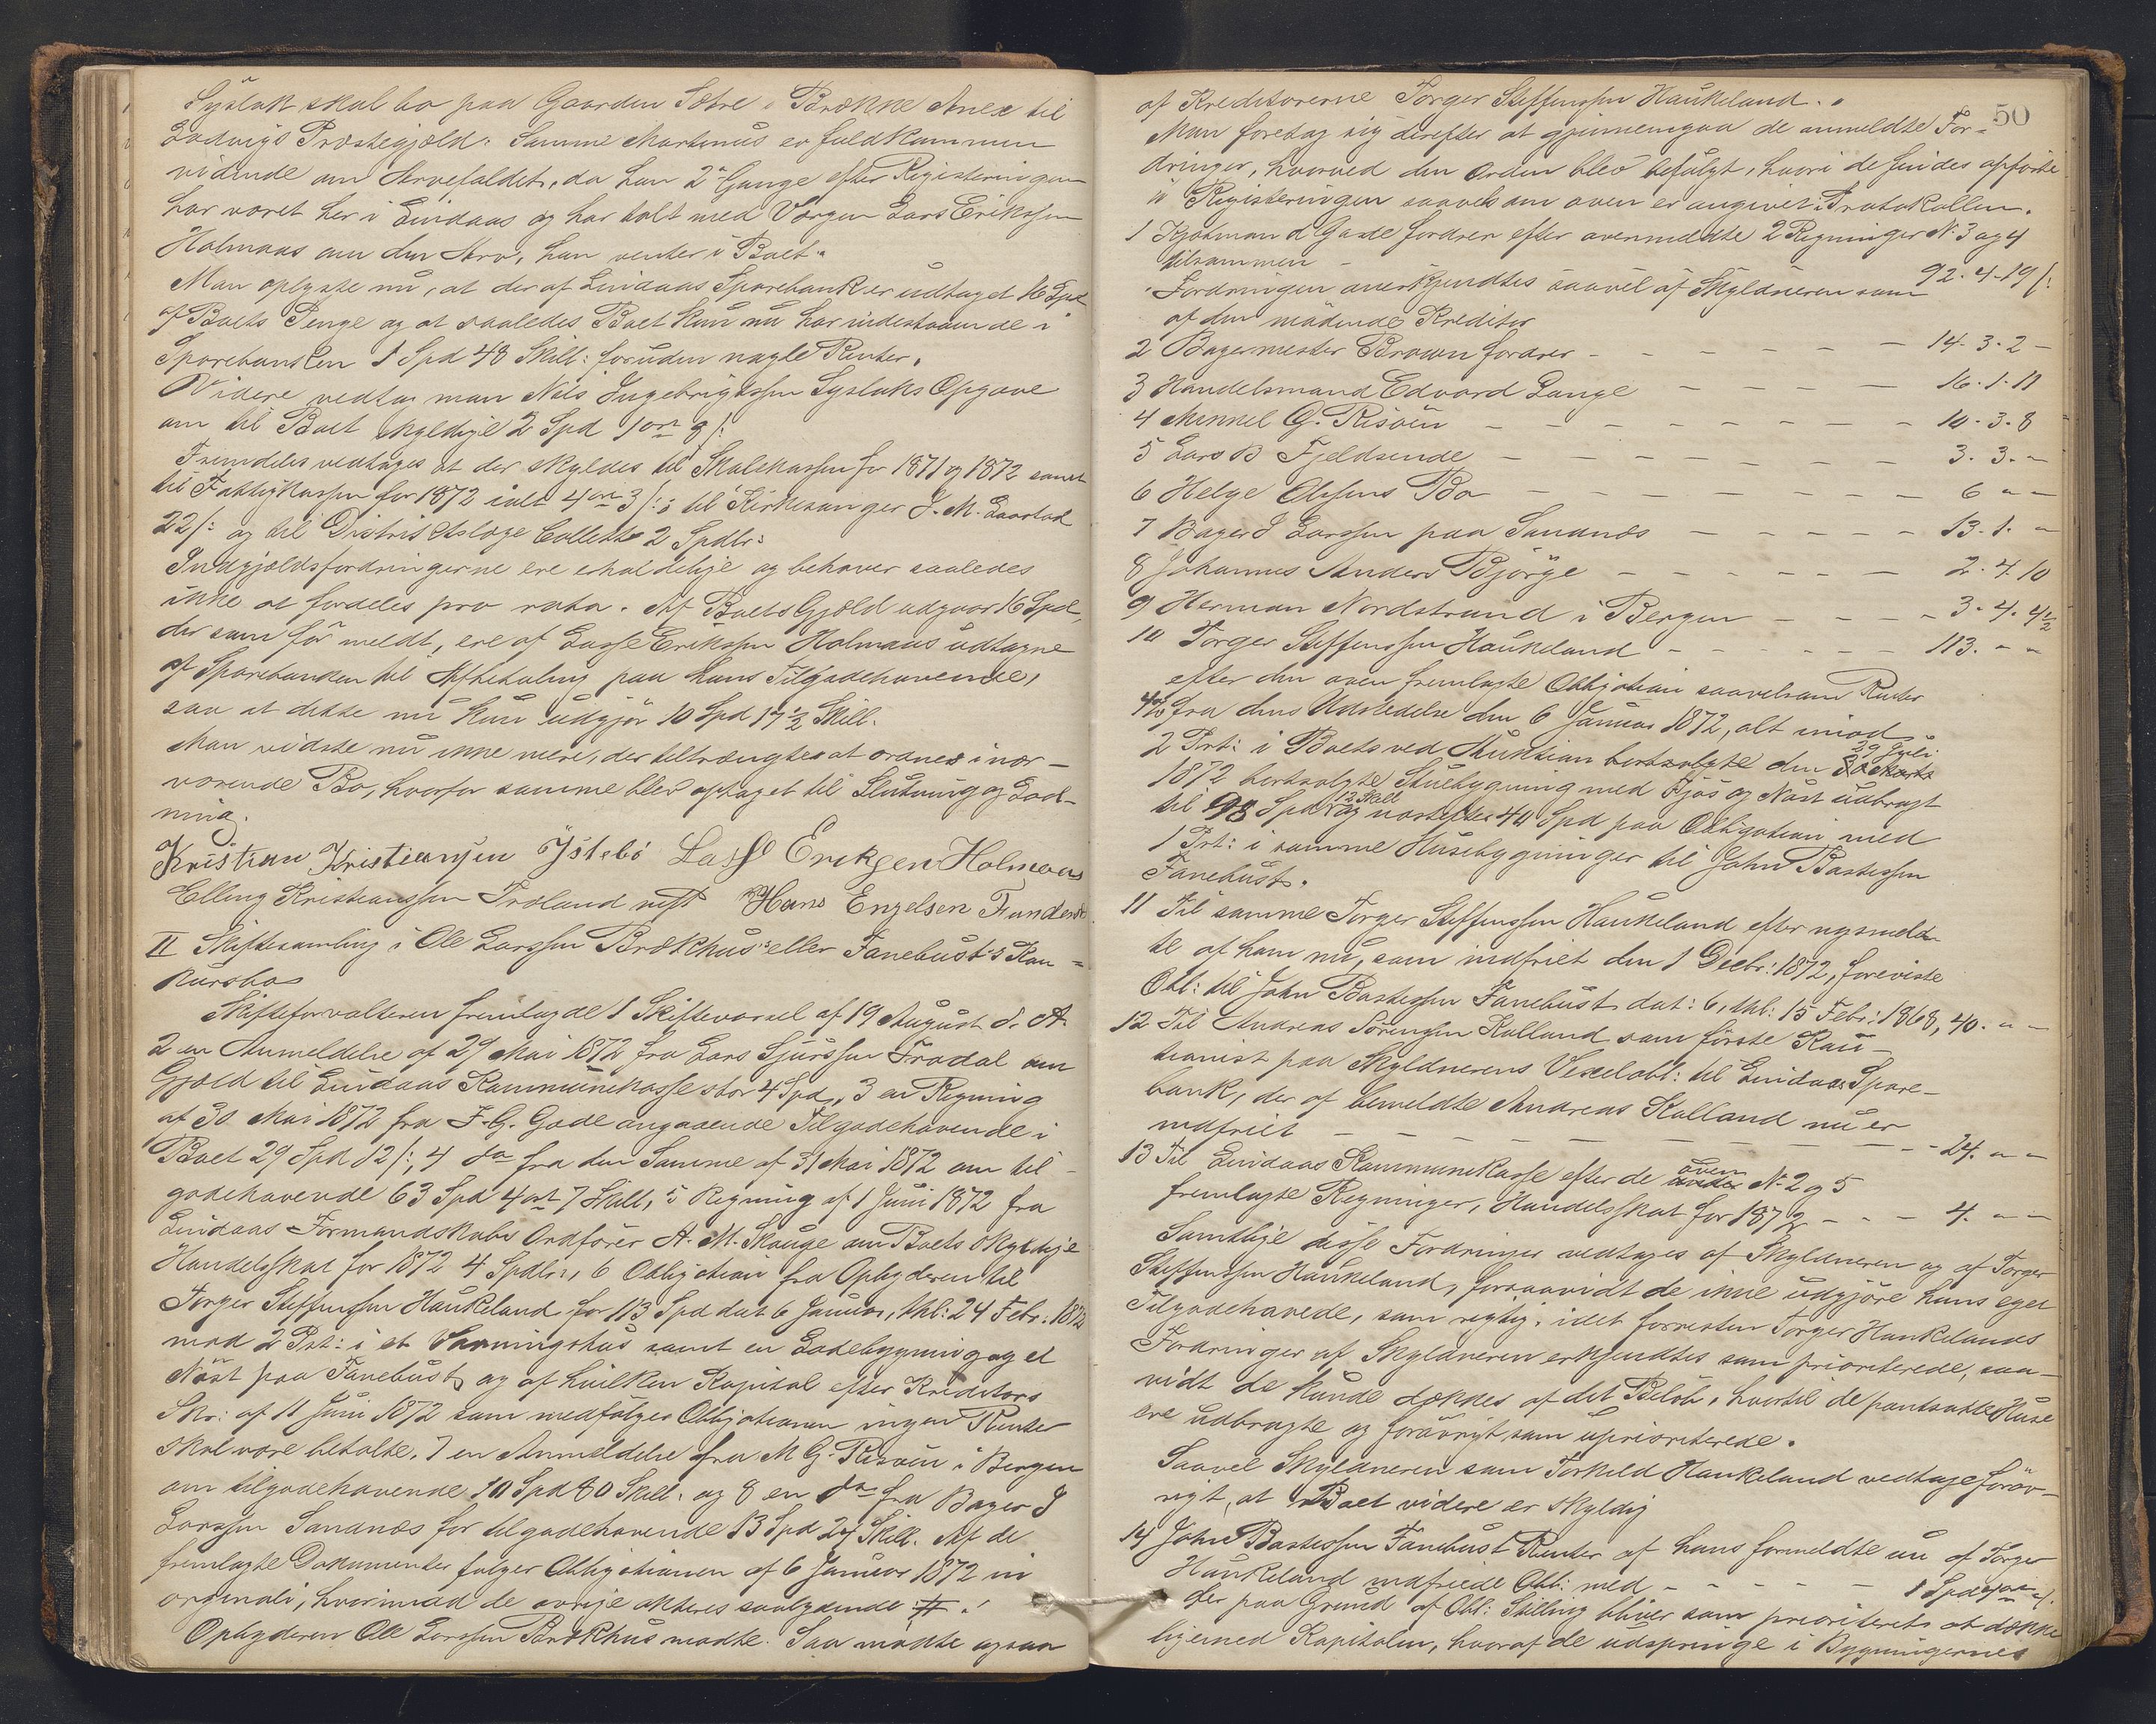 Syslak skal bo paa Gaarden Sætre i Brække Anex til
Ladvigs Præstegjæld. Samme Martinus er fuldkommen
vidende om Arvefaldet, da han 2de Gange efter Registeringen
har været her i Lindaas og har talt med Værgen Lars Erikssen
Holmaas om den Arv, han venter i Boet.
Man oplyste nu, at der af Lindaas Sparebank er udtaget 16 Spd
af Boets Penge og at saaledes Boet kun nu har indestaaende i
Sparebanken 1 Spd 48 Skill: foruden nogle Renter.
Videre vedtog man Nils Ingebrigtssen Syslaks Opgave
om til Boet skyldige 2 Spd 1 ort 8 /:
Fremdeles vedtages at der skyldes til Skolekassen for 1871 og 1872 samt
til Fattigkassen for 1872 ialt 4 ort 3 /:; til Kirkesanger J. M. Laastad
22 /: og til Distriktslæge Collett 2 Spdlr:
Indgjældsfordringerne ere erholdelige og behøver saaledes
ikke at fordeles pro rata. Af Boets Gjæld udgaar 16 Spd,
der som før meldt, ere af Lasse Erikssen Holmaas udtagne
af Sparebanken til Afbetaling paa hans Tilgodehavende,
saa at dette nu kun udgjør 10 Spd 17 ½ Skill.
Man vidste nu ikke mere, der tiltrængtes at ordnes i nær-
værende Bo, hvorfor samme blev optaget til Slutning og Lod-
ning.
Kristian Kristiansen Ystebö Lasse Eriksen Holmaas
Elling Kristianssen Træland Hans Engelsen Fanden
II Skiftesamling i Ole Larssen Brækhus' eller Fanebust's Kon-
kursbo
Skifteforvalteren fremlagde 1 Skiftevarsel af 19 August d. A.
2 en Anmeldelse af 29 Mai 1872 fra Lars Sjurssen Fradal om
Gjæld til Lindaas Kommunekasse stor 4 Spd, 3 en Regning
af 30 Mai 1872 fra F. G. Gade angaaende Tilgodehavende i
Boet 29 Spd 12 /:, 4 do fra den Samme af 31 Mai 1872 om til-
godehavende 63 Spd 4 ort 7 Skill, 5 Regning af 1 Juni 1872 fra
Lindaas Formandskabs Ordfører A. M. Skauge om Boets skyldige
Handelsskat for 1872 4 Spdlr:, 6 Obligation fra Opbyderen til
Torger Steffenssen Haukeland for 113 Spd dat 6 Januar, thl: 24 Febr: 1872
mod 2 Prt: i et Vaaningshus samt en Ladebygning og et
Nøst paa Fanebust og af hvilken Kapital efter Kreditors
Skr: af 11 Juni 1872 som medfølger Obligationen ingen Renter
skal være betalte. 7 en Anmeldelse fra M G. Risöen i Bergen
om tilgodehavende 10 Spd 80 Skill. og 8 en do fra Bager J
Larssen Sandnæs for tilgodehavende 13 Spd 24 Skill. Af de
fremlagte Dokumenter følger Obligationen af 6 Januar 1872 in
originali, hvorimod de øvrige akteres saalydende: #.
Opbyderen Ole Larssen Brækhus mødte. Saa mødte ogsaa
50
af Kreditorerne Torger Steffenssen Haukeland.
Man foretog sig derefter at gjennemgaa de anmeldte For-
dringer, hvorved den Orden blev befulgt, hvori de findes opførte
i Registeringen saavelsom oven er angivet i Protokollen.
1 Kjøbmand Gade fordrer efter ovenmeldte 2 Regninger N: 3 og 4
tilsammen - 92. 4. 19 /:
Fordringen anerkjendtes saavel af Skyldneren som
af den mødende Kreditor
2 Bagermester Brown fordrer - - - - - 14. 3. 2 -
3 Handelsmand Edvard Lange - - - - 16. 1. 11
4 Mikkel G. Risöen - - - - - - - 10. 3. 8
5 Lars B Fjeldsende - - - - - - - 3. 3. -
6 Helge Olsens Bo - - - - - - - 6 - -
7 Bager J Larssen paa Sandnæs - - - - - 13. 1. -
8 Johannes Anders Bjørge - - - - - - 2. 4. 10
9 Herman Nordstrand i Bergen - - - - 3. 4. 4½
10 Torger Steffenssen Haukeland - - - - - 113. - -
efter den oven fremlagte Obligation saavelsom Renter
4% fra dens Udstedelse den 6 Januar 1872, alt imod
2 Prt: i Boets ved Auktion bortsolgte den 29 Juli
1872 bortsolgte Stuebygning med Fjøs og Nøst udbragt
til 98 Spd 12 Skill og næstefter 40 Spd paa Obligation med
1 Prt: i samme Husebygninger til John Bastessen
Fanebust.
11 Til samme Torger Steffenssen Haukeland efter nysmeld-
te af ham nu, som indfriet den 1 Decbr: 1872, foreviste
Obl: til John Bastessen Fanebust dat: 6, thl: 15 Febr: 1868, 40. - -
12 Til Andreas Sörensen Kalland som første Kau-
tionist paa Skyldnerens Vexelobl: til Lindaas Spare-
bank, der af bemeldte Andreas Kalland nu er
indfriet - - - - - - - - - - 24. - -
13 Til Lindaas Kommunekasse efter de oven N: 2 og 5
fremlagte Regninger, Handelsskat for 1872 - - - 4. - -
Samtlige disse Fordringer vedtages af Skyldneren og af Torger
Steffenssen Haukeland, forsaavidt de ikke udgjøre hans eget
Tilgodehavede, som rigtig; idet forresten Torger Haukelands
Fordringer af Skyldneren erkjendtes som prioriterede, saa-
vidt de kunde dækkes af det Beløb, hvortil de pantsatte Huse
ere udbragte og forøvrigt som uprioriterede.
Saavel Skyldneren som Torkild Haukeland vedtage forøv-
rigt, at Boet videre er skyldig
14 John Bastessen Fanebust Renter af hans formeldte nu af Torger
Haukeland indfriede Obl: med - - - - - 1 Spd
der paa Grund af Obl: Stilling bliver som prioriteret at dække
ligemed Kapitalen, hvoraf de udspringe i Bygningernes